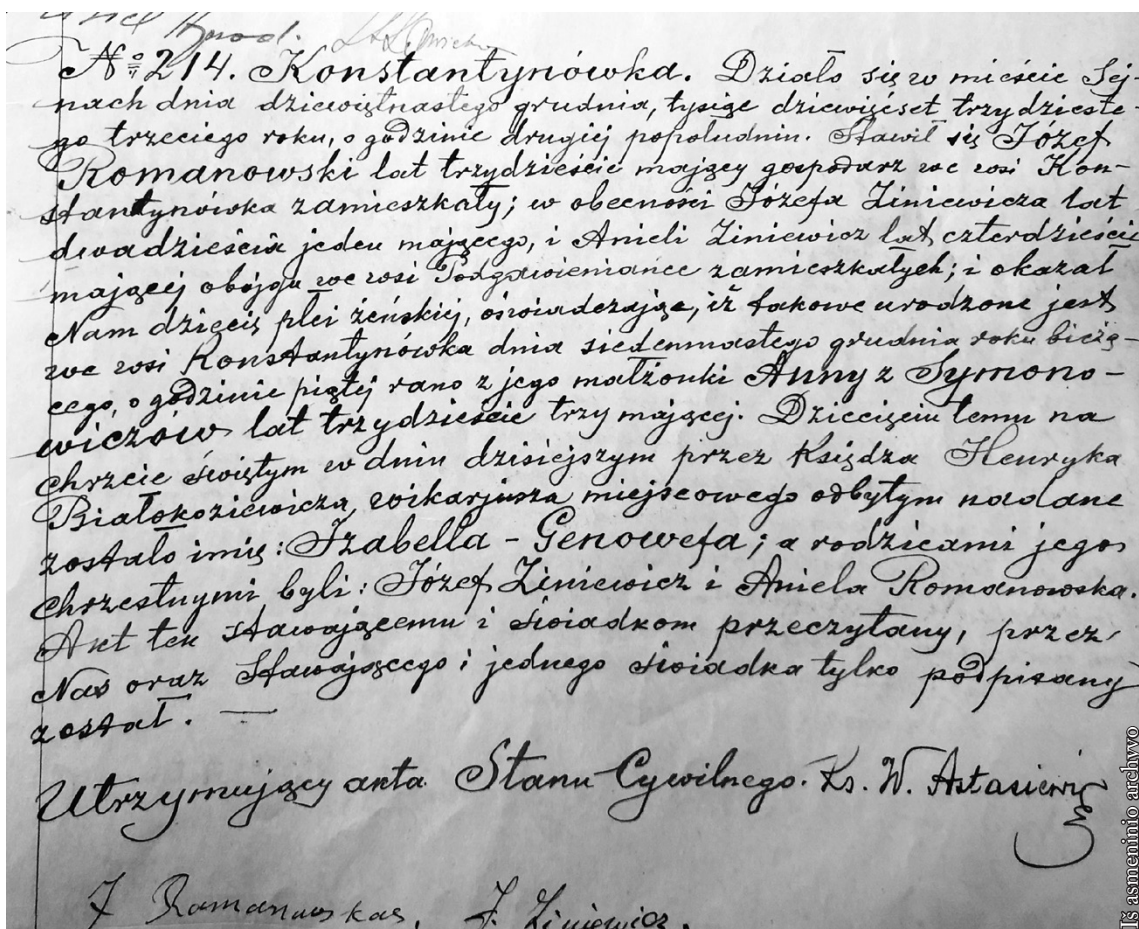 № 214. Konstantynówka. Działo się w mieście Sej-
nach dnia dziewiętnastego grudnia, tysiąc dziewięćset trzydzieste
go trzeciego roku, o godzinie drugiej popołudniu. Stawił się Józef
Romanowski lat trzydzieście mający gospodarz we wsi Kon-
stantynówka zamieszkały; w obecności Józefa Ziniewicza lat
dwadzieścia jeden mającego, i Anieli Ziniewicz lat czterdzieście
mającej obojga we wsi Podgawieniańce zamieszkałych; i okazał
Nam dziecię płci żeńskiej, oświadczając, iż takowe urodzone jest
we wsi Konstantynówka dnia siedemnastego grudnia roku bieżą-
cego, o godzinie piątej rano z jego małżonki Anny z Symono-
wiczów lat trzydzieście trzy mającej. Dziecięciu temu na
chrzcie świętym w dniu dzisiejszym przez Księdza Henryka
Białokoziewicza, wikarjusza miejscowego odbytym nadane
zostało imię: Izabella - Genowefa; a rodzicami jego
chrzestnymi byli: Józef Ziniewicz i Aniela Romanowska.
Akt ten stawającemu i świadkom przeczytany, przez
Nas oraz Stawającego i jednego świadka tylko podpisany
został. —
Utrzymujący akta Stanu Cywilnego. Ks. W. Astasiewicz
J Romanowskas, J. Ziniewicz.
Iš asmeninio archyvo